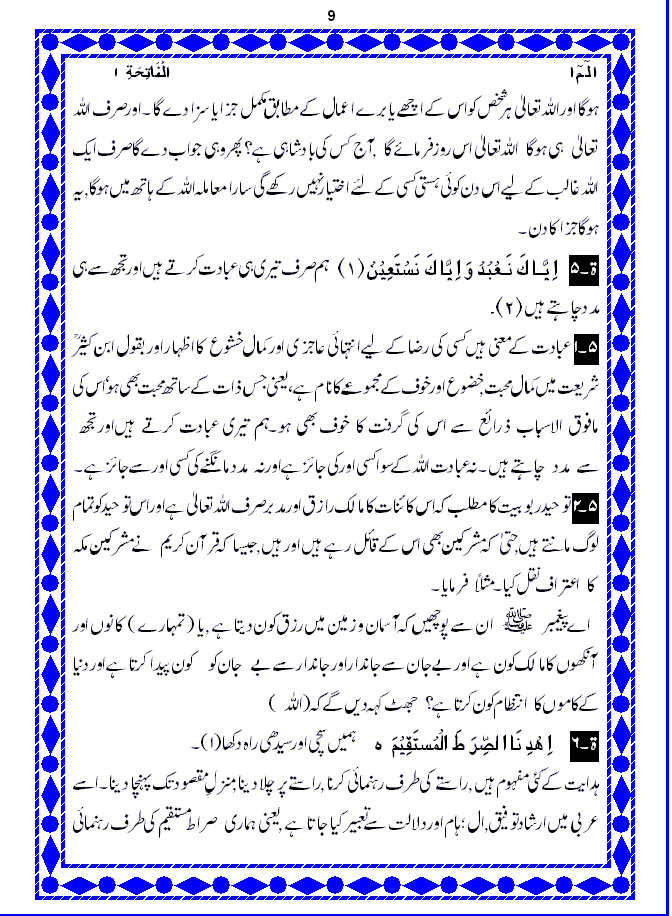 9
الٓمّٓ ١ الْفَاتِحَةِ ١
ہوگا اور اللہ تعالیٰ ہر شخص کو اس کے اچھے یا برے اعمال کے مطابق مکمل جزا یا سزا دے گا ۔اور صرف اللہ
تعالیٰ ہی ہوگا اللہ تعالیٰ اس روز فرمائے گا ,آج کس کی بادشاہی ہے؟ پھر وہی جواب دے گا صرف ایک
اللہ غالب کے لیے اس دن کوئی ہستی کسی کے لئے اختیار نہیں رکھے گی سارا معاملہ اللہ کے ہاتھ میں ہوگا,یہ
ہوگا جزا کا دن ۔
ة۔۵ اِيَّاكَ نَعْبُدُ وَاِيَّاكَ نَسْتَعِيْنُ (۱) ہم صرف تیری ہی عبادت کرتے ہیں اور تجھ سے ہی
مدد چاہتے ہیں (۲)۔
۵۔۱ عبادت کے معنی ہیں کسی کی رضا کے لیے انتہائی عاجزی اور کمال خشوع کا اظہار اور بقول ابن کثیرؒ
شریعت میں کمال محبت,خضوع اور خوف کے مجموعے کا نام ہے،یعنی جس ذات کے ساتھ محبت بھی ہو ُاس کی
مافوق الاسباب ذرائع سے اس کی گرفت کا خوف بھی ہو۔ہم تیری عبادت کرتے ہیں اور تجھ
سے مدد چاہتے ہیں ۔نہ عبادت اللہ کے سوا کسی اور کی جائز ہے اور نہ مدد مانگنے کی کسی اور سے جائز ہے ۔
۵۔۲ توحید ربوبیت کا مطلب کہ اس کائنات کا مالک رازق اور مدبر صرف اللہ تعالیٰ ہے اور اس توحید کو تمام
لوگ مانتے ہیں,حتیٰ کہ مشرکین بھی اس کے قائل رہے ہیں اور ہیں,جیسا کہ قرآن کریم نے مشرکین مکہ
کا اعتراف نقل کیا ۔مثلاً فرمایا ۔
اے پیغمبر ﷺ ان سے پوچھیں کہ آسمان و زمین میں رزق کون دیتا ہے ,یا (تمہارے) کانوں اور
آنکھوں کا مالک کون ہے اور بے جان سے جاندار اور جاندار سے بے جان کو کون پیدا کرتا ہے اور دنیا
کے کاموں کا انتظام کون کرتا ہے؟ جھٹ کہہ دیں گے کہ (اللہ )
ة۔۶ اِهْدِ نَا الصِّرَ طَ الْمُستَقِيْمَ ہ ہمیں سچی اور سیدھی راہ دکھا (۱)۔
ہدایت کے کئی مفہوم ہیں ,راستے کی طرف رہنمائی کرنا,راستے پر چلا دینا,منزل مقصود تک پہنچا دینا ۔اسے
عربی میں ارشاد توفیق,ال ؛ہام اور دلالت سے تعبیر کیا جاتا ہے ,یعنی ہماری صراط مستقیم کی طرف رہنمائی